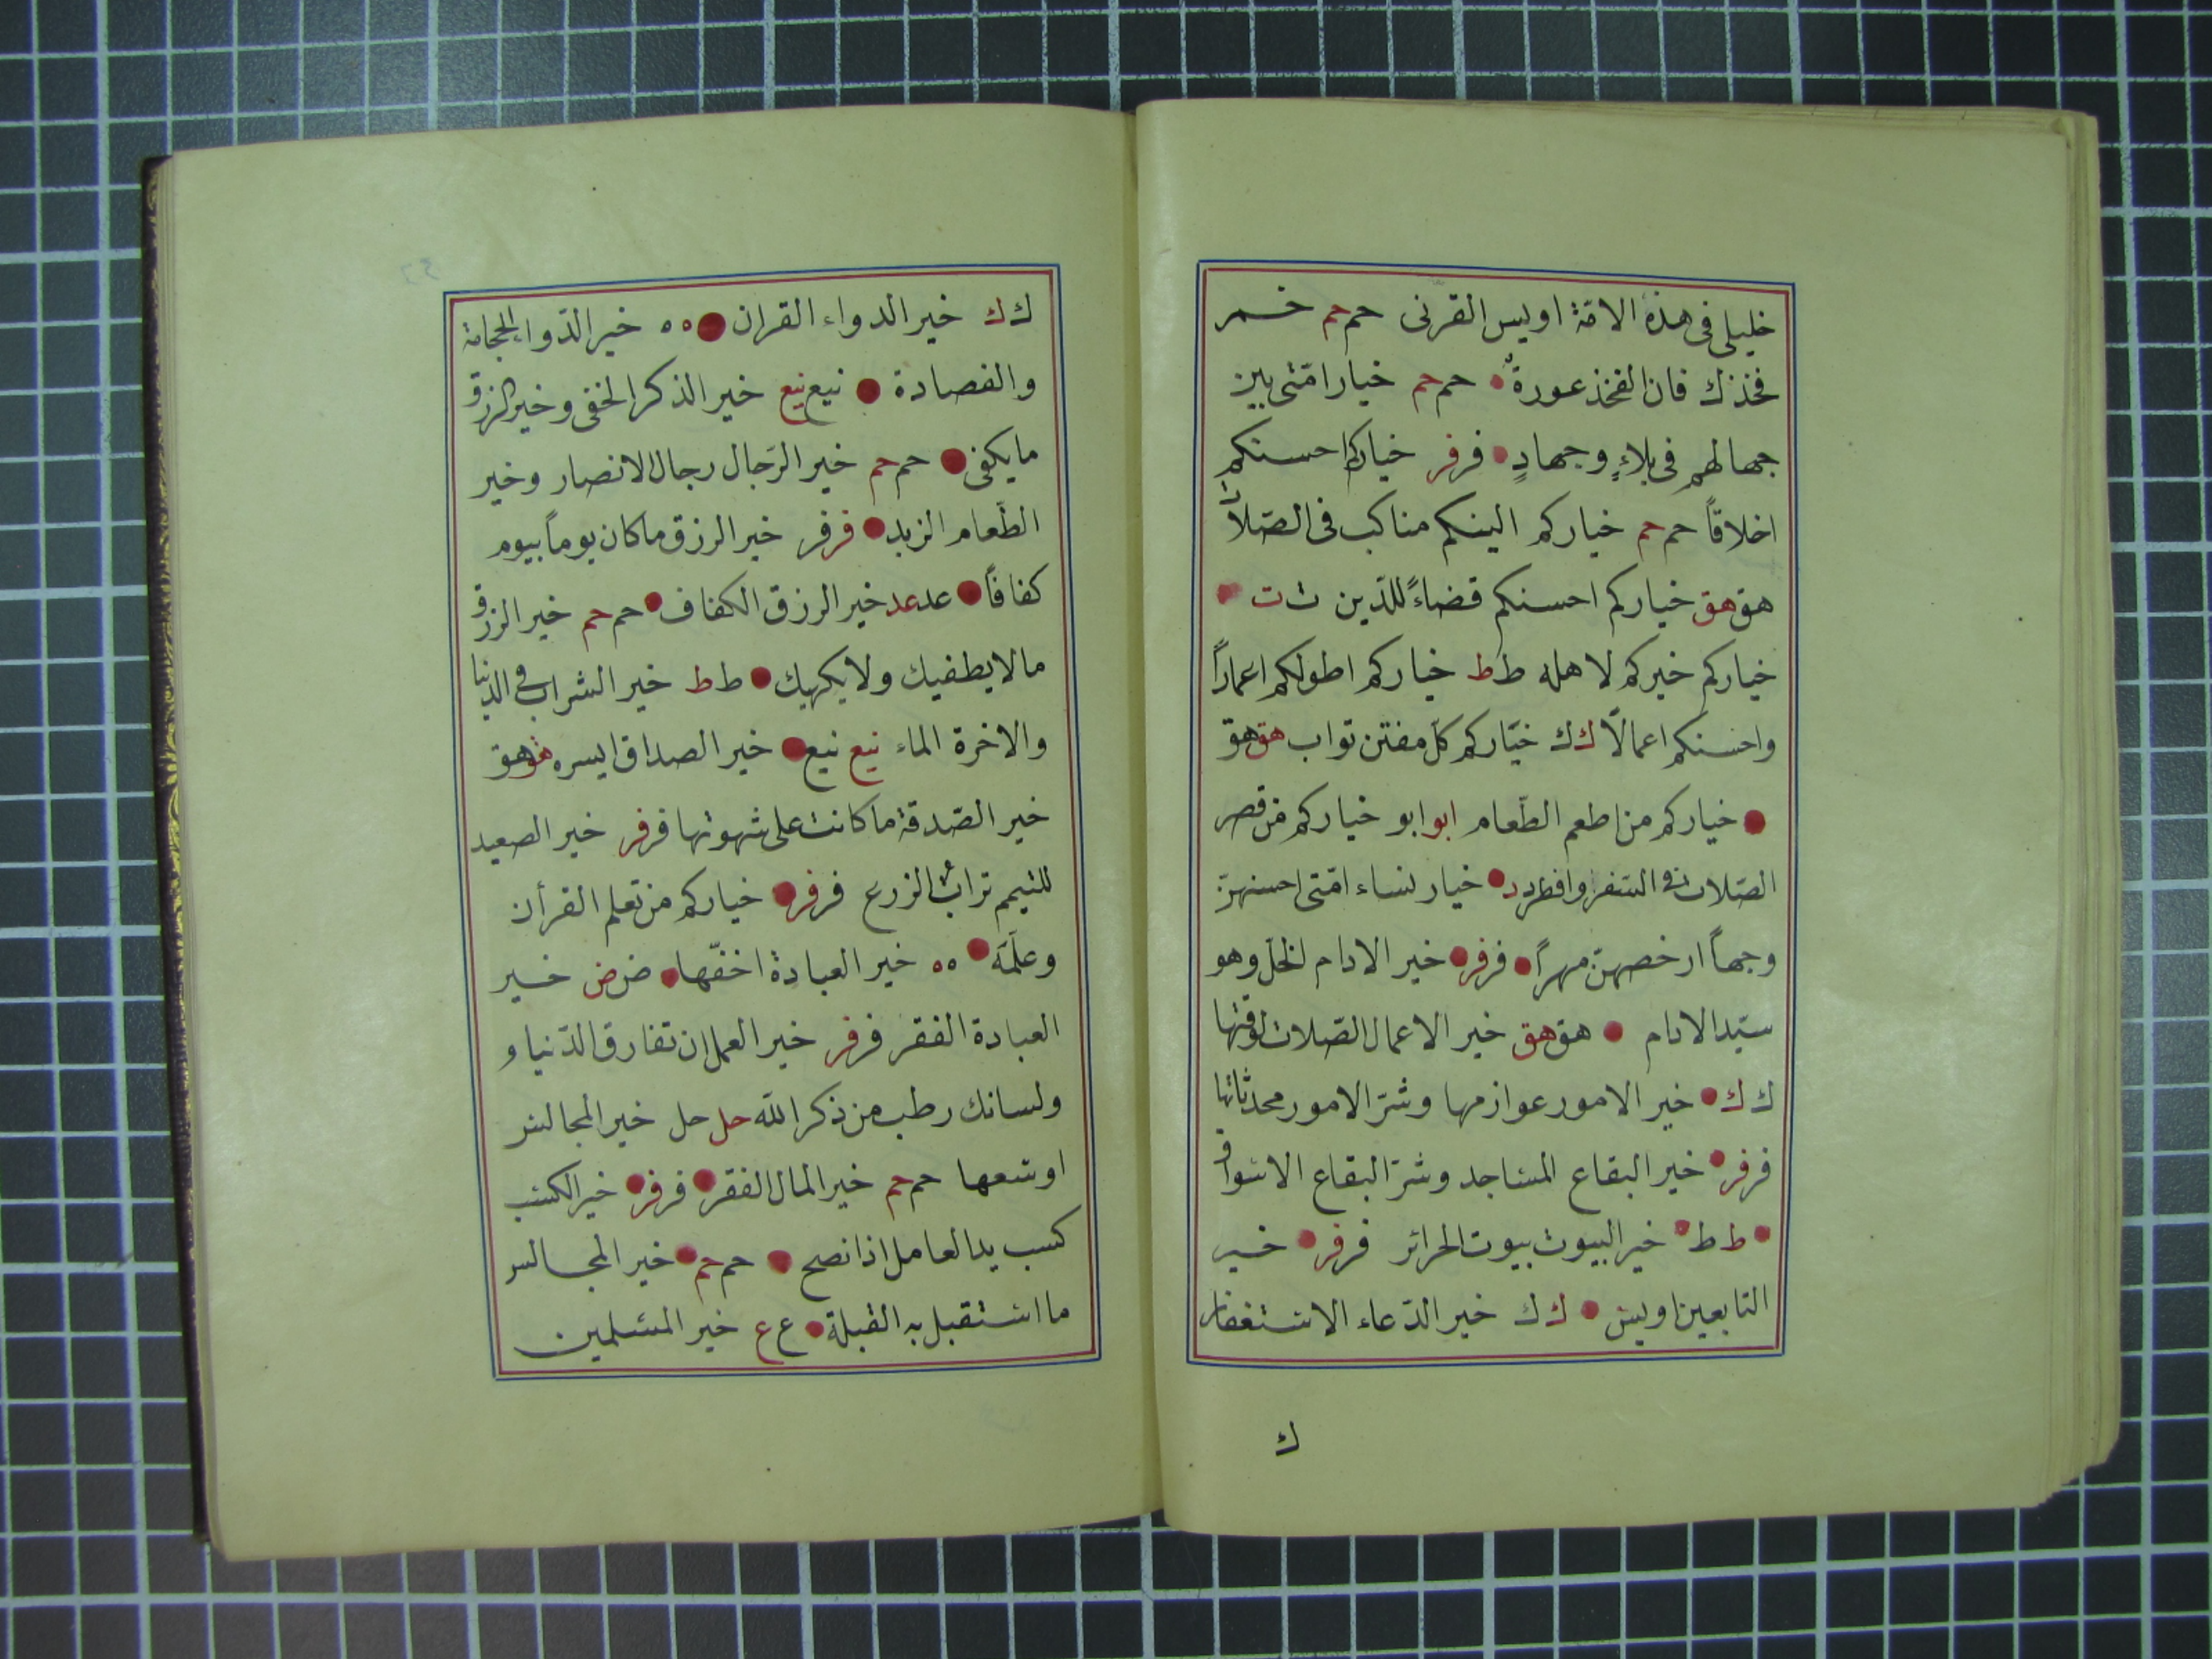 خليلى فى هذه الامّة اويس القرنى حم حم خمر
فخذك فان الفخذ عورة حم حم خيار امّتى بين
جهالهم فى بلاءٍ وجهادٍ فر فر خياركم احسنكم
اخلاقاً حم حم خياركم الينكم مناكب فى الصّلاة
هق هق خياركم احسنكم قضاءً للدّين ت ت
خياركم خيركم لاهله ط ط خياركم اطولكم اعماراً
واحسنكم اعمالاً ك ك خيّاركم كلّ مفتن تواب هق هق
خياركم من اطعم الطّعام ابو ابو خياركم من قصر
الصّلات فى السّفر وافطر د د خيار نساء امّتى احسنهنّ
وجهاً ارخصهنّ مهراً فر فر خير الادام الخلّ وهو
سيّد الادام هق هق خير الاعمال الصّلات لوقتها
ك ك خير الامور عوازمها وشرّ الامور محدثاتها
فر فر خير البقاع المساجد وشرّ البقاع الاسواق
ط ط خير البيوت بيوت الحرائر فر فر خير
التابعين اويس ك ك خير الدّعاء الاستغفار
ك
ك ك خير الدواء القران ه ه خير الدّواء الحجامة
والفصادة نيع نيع خير الذكر الخفى وخير الرزق
ما يكفى حم حم خير الرّجال رجال الانصار وخير
الطّعام الزبد فر فر خير الرزق ما كان يوماً بيوم
كفافاً عد عد خير الرزق الكفاف حم حم خير الرزق
ما لا يطفيك ولا يكهيك ط ط خير الشراب فى الدنيا
والاخرة الماء نيع نيع خير الصداق ايسره هق هق
خير الصّدقة ما كانت على شهوتها فر فر خير الصعيد
للتيمم تراب الزرع فر فر خياركم من تعلم القرأن
وعلّمه ه ه خير العبادة اخفّها ض ض خير
العبادة الفقر فر فر خير العمل ان تفارق الدّنيا و
ولسانك رطب من ذكر الله حل حل خير المجالس
اوسعها حم حم خير المال الفقر فر فر خير الكسب
كسب يد العامل اذا نصح حم حم خير المجالس
ما استقبل به القبلة ع ع خير المسلمين